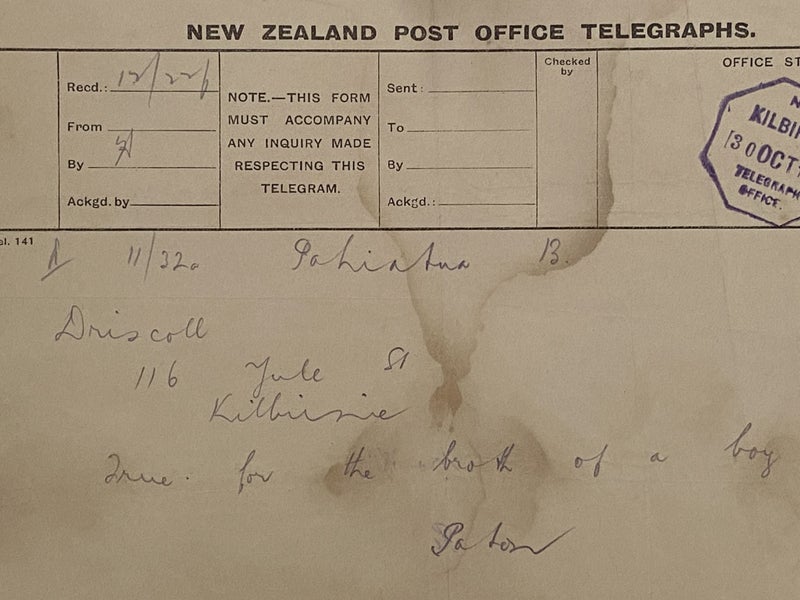 NEW ZEALAND POST OFFICE TELEGRAPHS.
Recd.: 12/22
From
By
Ackgd. by
NOTE.—THIS FORM
MUST ACCOMPANY
ANY INQUIRY MADE
RESPECTING THIS
TELEGRAM.
Sent:
To
By
Ackgd.:
Checked
by
OFFICE ST
N
KILBI
30 OCT
TELEGRAPH
OFFICE.
ol. 141
11/32a Pahiatua 13.
Driscoll
116 Yule St
Kilbirnie
True for the broth of a boy
Paton